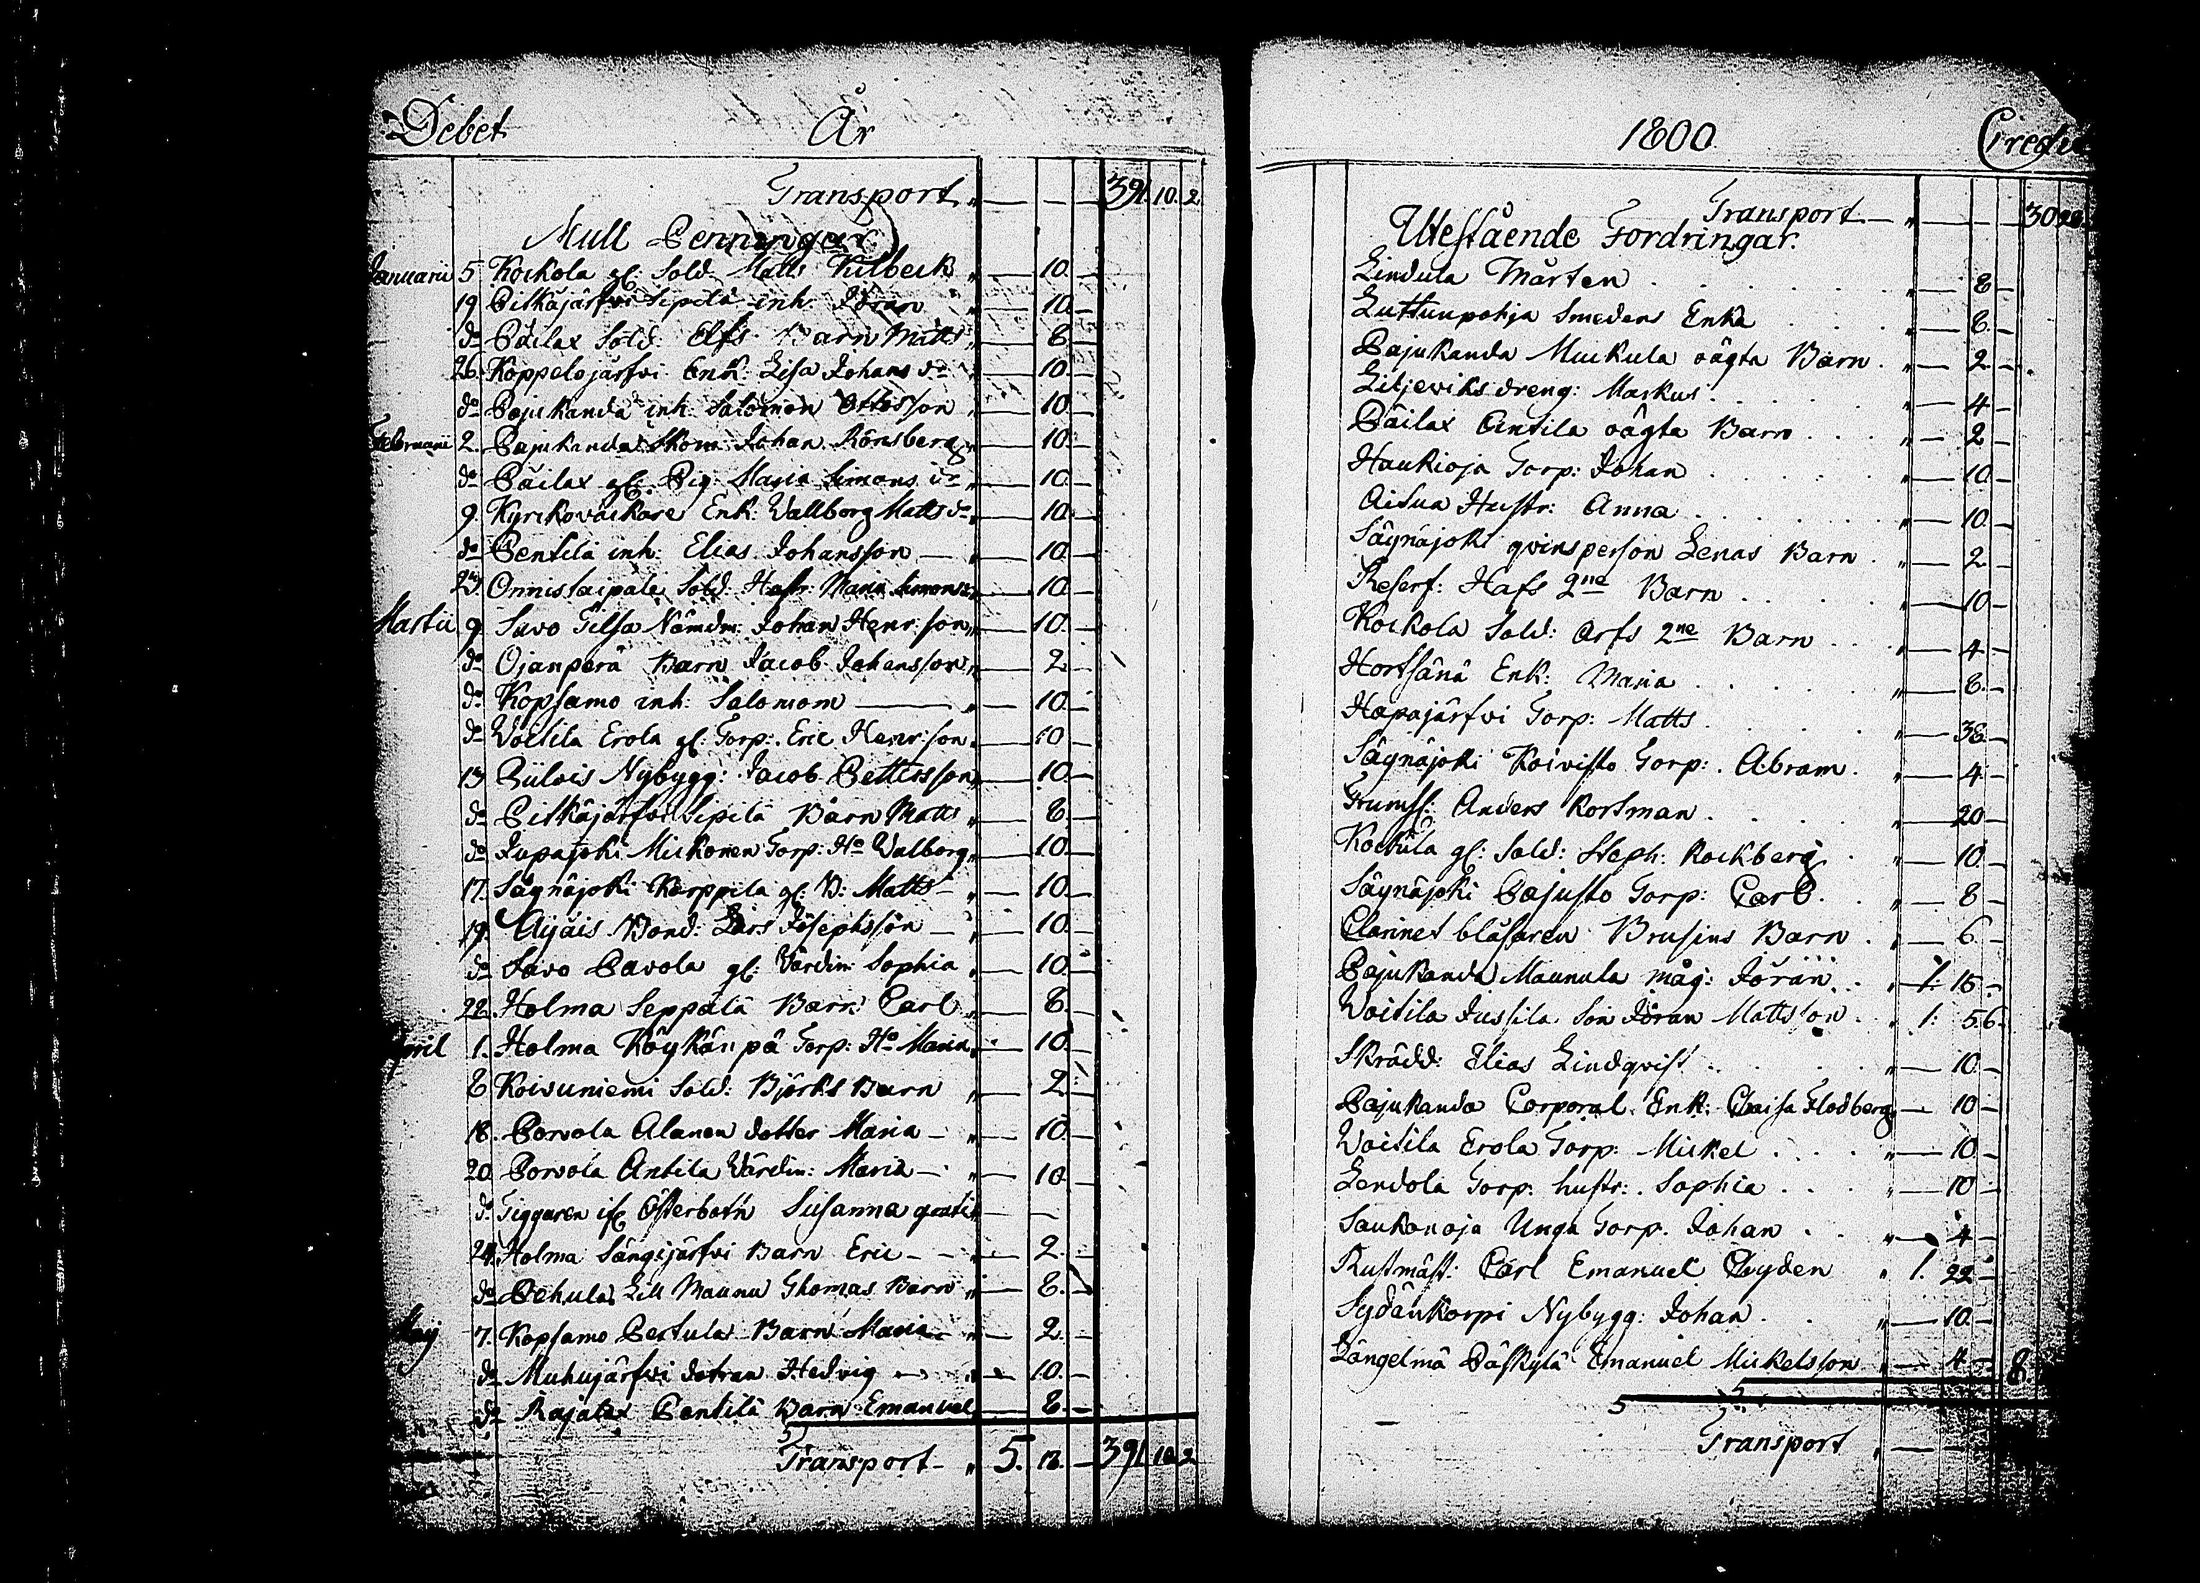 Debet År
Transport „ — — 391. 10. 2
Mull Penningar
Januarii 5 Kockola gl: Sold. Matts Kilbeck „ — 10. —
19 Pitkäjärfvi Sipilä inh: Jöran „ — 10. —
do Päilax Sold: Elfs Barn Matts „ — 8. —
26. Koppelojärfvi Enk: Lisa Johans dr „ — 10. —
do Pajukanda inh: Salomon Ottosson „ — 10. —
Februarii 2. Pajukanda Skom: Johan Rönsberg „ — 10. —
do Päilax gl: Pig. Maria Simons dr „ — 10. —
9. Kyrkoväckare Enk: Wallborg Matts dr „ — 10. —
do Pentilä inh: Elias Johansson — „ — 10. —
23. Onnistaipale Sold: Hustr: Maria Simonsdr „ — 10. —
Martii 9. Savo Tilsa Nämdm: Johan Henr:son „ — 10. —
do Ojanperä Barn Jacob Johansson „ — 2. —
do Kopsamo inh: Salomom — „ — 10. —
do Woitila Erola gl: Torp: Eric Henr:son „ — 10 —
13 Piilois Nybygg: Jacob Pettersson „ — 10. —
do Pitkäjärfvi Sipilä Barn Matts „ — 8. —
do Jupajoki Mickonen Torp: Ho Walborg „ — 10. —
17. Säynäjoki Karppila gl: B: Matts — „ — 10. —
19. Äijäis Bond: Lars Josephsson — „ — 10. —
do Savo Pavola gl: Värdin: Sophia „ — 10. —
22. Holma Seppälä Barn Carl „ — 8. —
April 1. Holma Köykänpä Torp: Ho Maria „ — 10. —
8 Koivuniemi Sold: Björks Barn „ — 2. —
18. Porvola Alanen dotter Maria — „ — 10. —
20. Porvola Antila Värdin: Maria — „ — 10. —
do Tiggaren if: Österbotn Susanna gratis — —
24. Holma Sängijärfvi Barn Eric — „ — 2. —
do Pehula Lill Maunu Thomas Barn „ — 8. —
Maij 7. Kopsamo Pertula Barn Maria — „ — 2. —
do Muhujärfvi dotran Hedvig — „ — 10. —
do Rajalax Pentilä Barn Emanuel — 8. —
Transport — „ 5. 18. — 391 10 2
1800 Credit
Transport — „ — — 30
Utestående Fordringar.
Lindula Mårten „ — 8 —
Luttunpohja Smeden Enka „ — 8. —
Pajukanda Muckula oägta Barn „ — 2 —
Liljeviks dreng: Markus „ — 4 —
Päilax Antila oägta Barn „ — 2 —
Haukioja Torp: Johan „ — 10. —
Aitua Hustr: Anna „ — 10. —
Säynäjoki qvinsperson Lenas Barn „ — 2 —
Reserf: Hafs 2ne Barn „ — 10 —
Kockola Sold: Arfs 2ne Barn „ — 4 —
Hortsänä Enk: Maria „ — 8. —
Hapajärfvi Torp: Matts „ — 38. —
Säynäjoki Koivisto Torp: Abram „ — 4 —
Trumsl: Anders Kortman „ — 20 —
Kockila gl: Sold: Steph: Rockberg „ — 10. —
Säynäjoki Pajusto Torp: Carl „ — 8 —
Clarinet blåsaren Brusins Barn „ — 6. —
Pajukanda Maunula måg: Jöran „ 1: 16. —
Woitila Jussila Son Jöran Mattsson „ 1: 5 6.
Skrädd: Elias Lindqvist „ — 10. —
Pajukanda Corporal. Enk: Chaisa Flodberg — 10 —
Woitila Erola Torp: Mickel „ — 10 —
Lendola Torp: hustr: Sophia „ — 10 —
Saukonoja Unga Torp: Johan „ — 4 —
Rustmäst: Carl Emanuel Clyden „ 1. 22 —
Sydänkorpi Nybygg: Johan „ — 10. —
Längelmä Päskylä Emanuel Mickelsson „ — 4 — 8.
Transport „ —